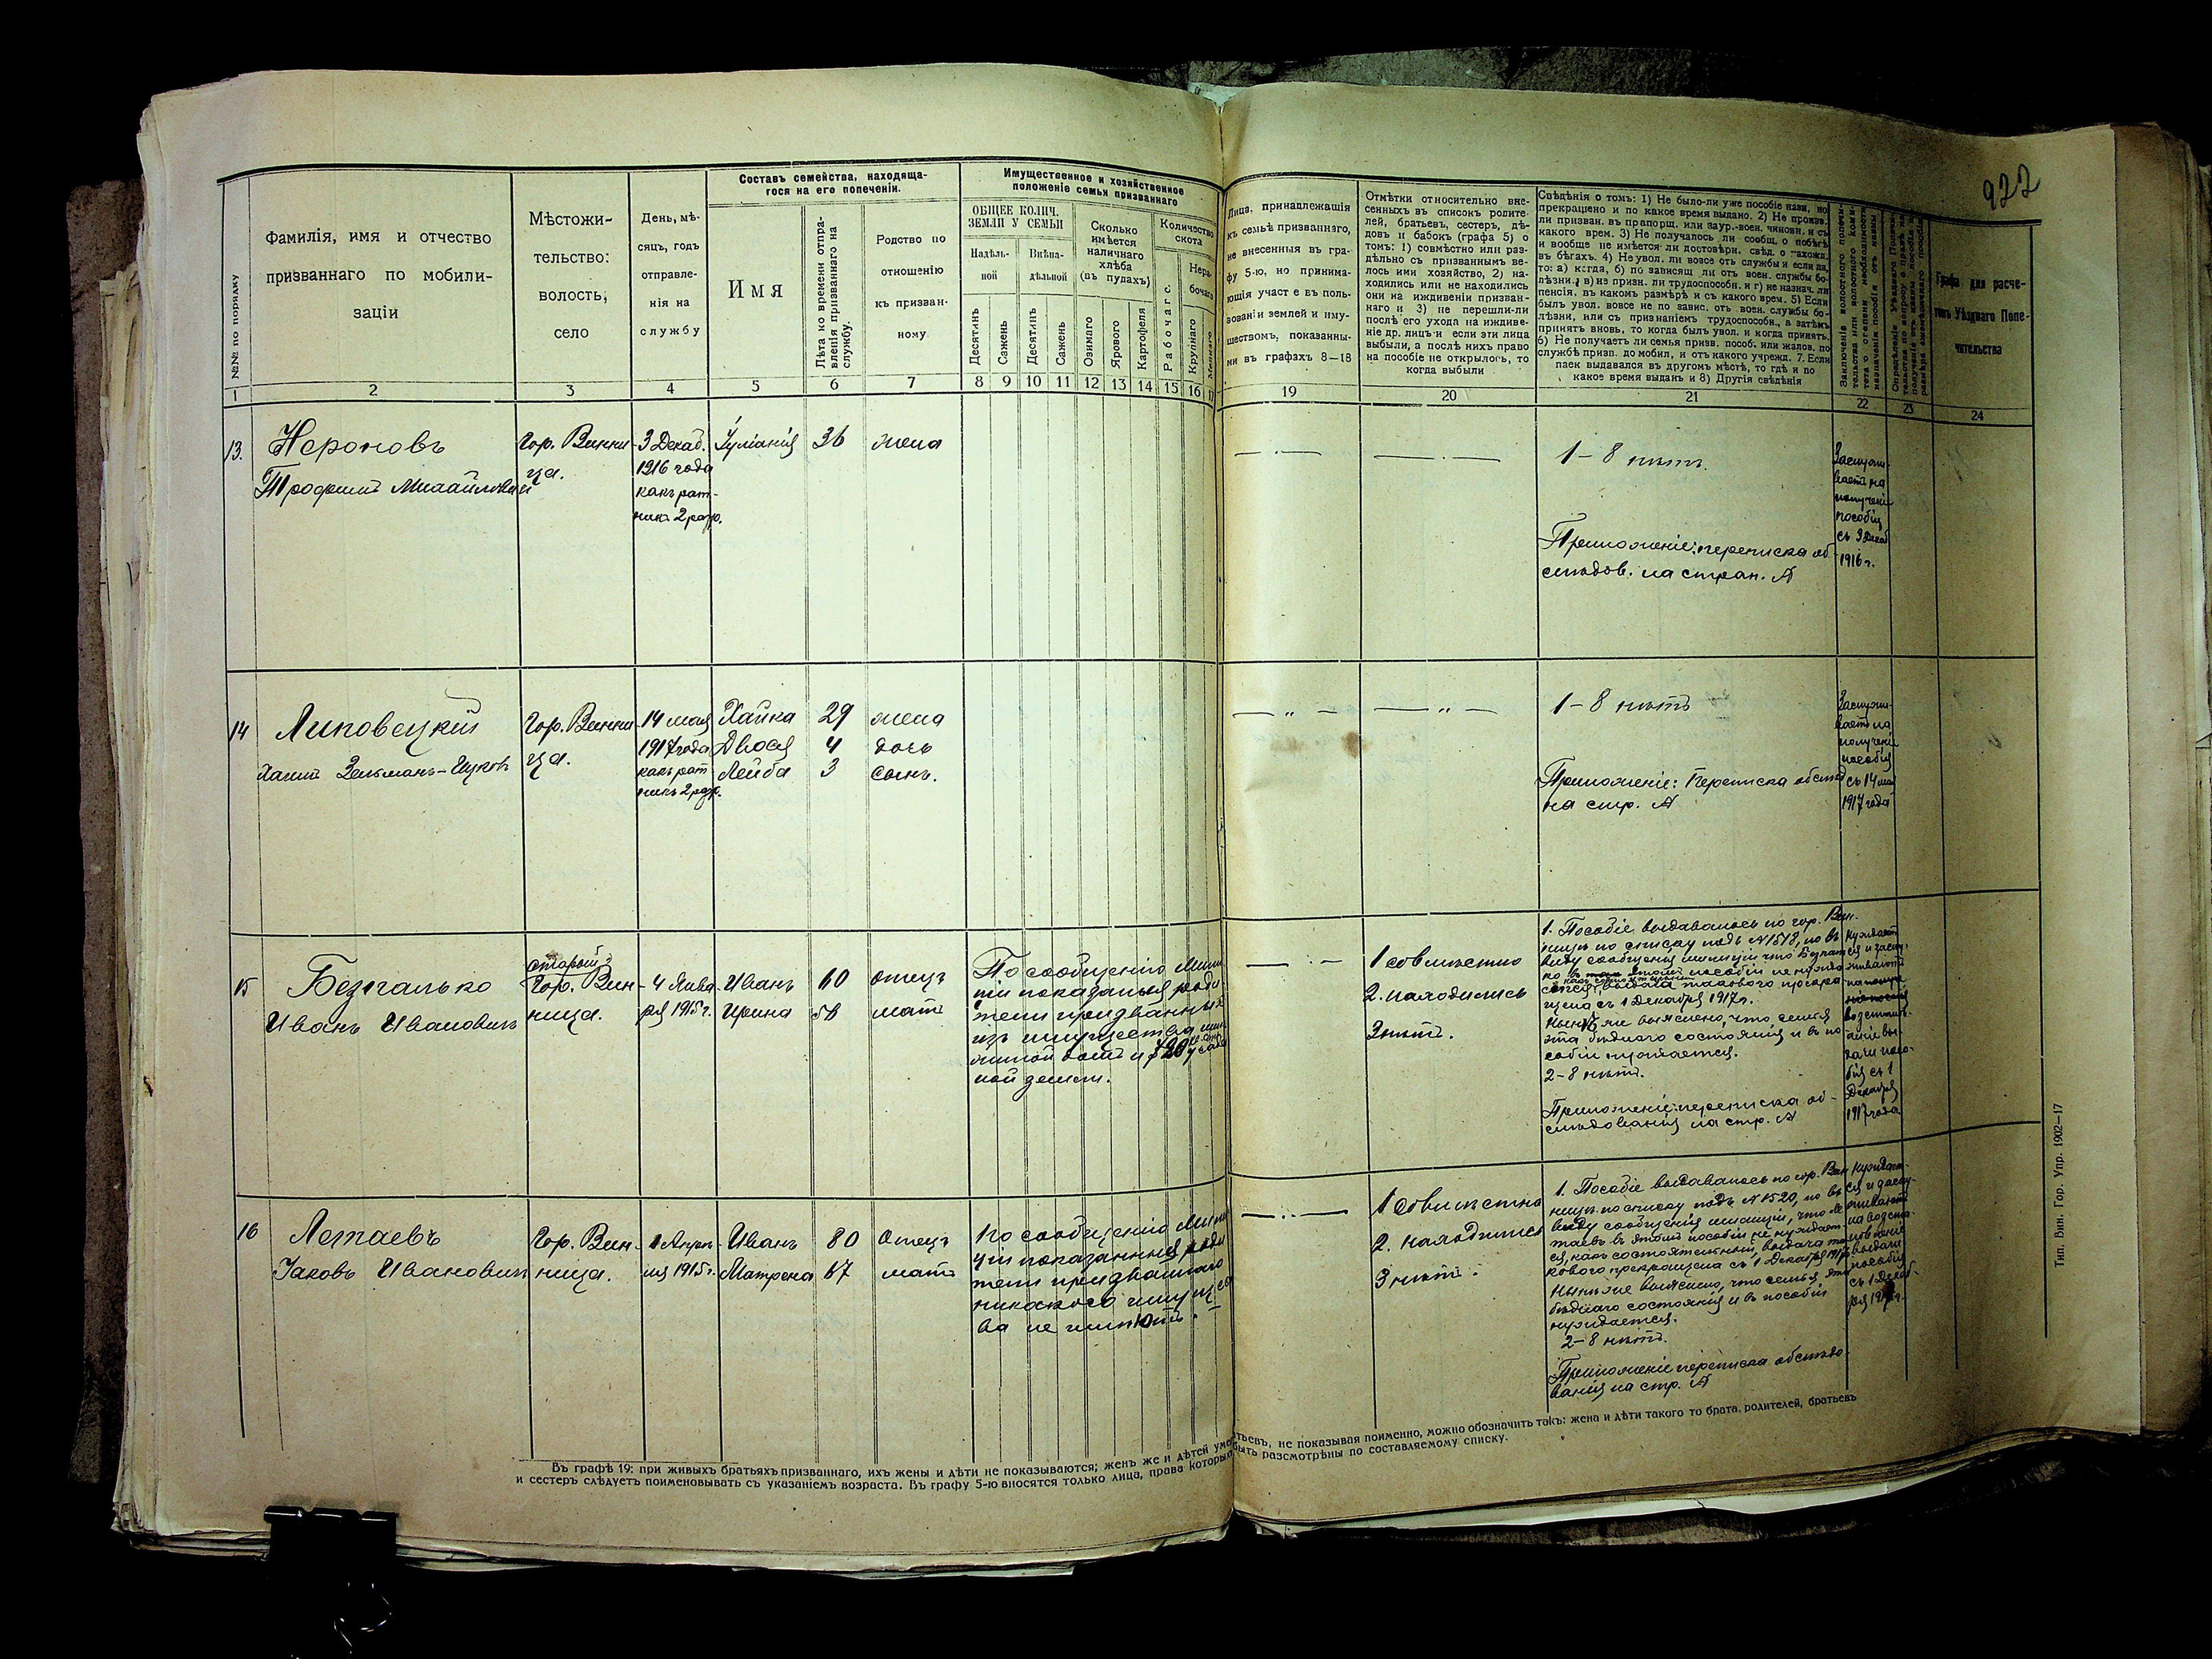 922
№№ по порядку
Фамилія, имя и отчество
призваннаго по мобили-
заціи
Мѣстожи-
тельство:
волость,
село
День, мѣ-
сяцъ, годъ
отправле-
нія на
службу
Составъ семейства, находяща-
гося на его попеченіи.
Имя
Лѣта ко времени отпра-
вленія призваннаго на
службу.
Родство по
отношенію
къ призван-
ному
Имущественное и хозяйственное
положеніе семьи призваннаго
ОБЩЕЕ КОЛИЧ.
ЗЕМЛИ У СЕМЬИ
Надѣль-
ной
Внѣна-
дѣльной
Десятинъ
Сажень
Десятинъ
Сажень
Сколько
имѣется
наличнаго
хлѣба
(въ пудахъ)
Озимаго
Ярового
Картофеля
Количество
скота
Рабочаго
Нера-
бочаго
Крупнаго
Мелкаго
Лица, принадлежашія
къ семьѣ призваннаго,
не внесенныя въ гра-
фу 5-ю, но принима-
ющія участ е въ поль-
зованіи землей и иму-
ществомъ, показанны-
ми въ графахъ 8—18
Отмѣтки относительно вне-
сенныхъ въ список родите-
лей, братьевъ, сестеръ, дѣ-
довъ и бабокъ (графа 5) о
томъ: 1) совмѣстно или раз-
дѣльно съ призваннымъ ве-
лось ими хозяйство, 2) на-
ходились или не находились
они на иждивеніи призван-
наго и 3) не перешли-ли
послѣ его ухода на иждиве-
ніе др. лицъ и если эти лица
выбыли, а послѣ нихъ право
на пособіе не открылось, то
когда выбыли
Свѣдѣнія о томъ: 1) Не было-ли уже пособіе назн, но
прекращено и по какое время выдано. 2) Не произв.
ли призван. въ прапорщ. или заур.-воен. чиновн. и съ
какого врем. 3) Не получалось ли сообщ. о побѣгѣ
и вообще не имѣется-ли достовѣрн. свѣд. о нахожд.
въ бѣгахъ. 4) Не увол. ли вовсе отъ службы и если да,
то: а) когда, б) по зависящ ли отъ воен. службы бо-
лѣзни, в) не призн. ли трудоспособн. и г) не назнач. ли
пенсія, въ какомъ размѣрѣ и съ какого врем. 5) Если
былъ увол. вовсе не по завис. отъ воен. службы бо-
лѣзни, или съ признаніемъ трудоспособн., а затѣмъ
принятъ вновь, то когда былъ увол. и когда принятъ.
6) Не получаетъ ли семья призв. пособ. или жалов. по
службѣ призв. до мобил, и отъ какого учрежд. 7. Если
паек выдавался въ другомъ мѣстѣ, то гдѣ и по
какое время выданъ и 8) Другія свѣдѣнія
Заключеніе волостного попечи-
тельства или волостного коми-
тета о степени необходимости
назначенія пособія отъ казны
Графа для расче-
товъ Уѣзднаго Попе-
чительства
1 2 3 4 5 6 7 8 9 10 11 12 13 14 15 16 17 19 20 21 22 23 24
13. Нероновъ
Трофимъ Михайлович
Гор. Винни
ца.
3 Декаб.
1916 года
какъ рат-
никъ 2 разр.
Іуліанія 36 жена
1–8 нѣтъ.
Приложеніе: переписка об-
слѣдов. на стран. А
Заслужи-
ваетъ на
полученіе
пособія
съ 3 Декаб
1916 г.
14 Липовецкій
Хаимъ Зельманъ-Ицков
Гор. Винни
ца.
14 мая
1917 года
какъ рат
никъ 2 разр.
Хайка 29 жена
Двося 4 дочь
Лейба 3 сынъ.
1–8 нѣтъ
Приложеніе: Переписка обслѣд
на стр. А
Заслужи-
ваетъ на
полученіе
пособія
съ 14 мая
1917 года
15 Безпалько
Иванъ Ивановичъ
старый
Гор. Вин-
ница.
4 Янва-
ря 1915 г.
Иванъ 60 отецъ
Ирина 58 мать
По сообщенію Мили
ціи показанныя роди
тели призваннаго
изъ имущества им
жилой домъ и 720 кв. саж усадеб
ной земли.
1 совмѣстно
2. находились
3 нѣтъ.
1. Пособіе выдавалось по гор. Вин-
ницѣ по списку подъ №1518, но въ
виду сообщенія милиціи что Безпаль
ко въ этомъ пособіи не нужда
ется, выдача таковаго прекра
щена съ 1 Декабря 1917 г.
Нынѣ же выяснено, что семья
эта бѣднаго состоянія и въ по
собіи нуждается.
2–8 нѣтъ.
Приложеніе: переписка об-
слѣдованія на стр. А
Нуждает
ся и заслу-
живаетъ
возстанов
леніе вы-
дачи посо-
бія съ 1
Декабря
1917 года
16 Летаевъ
Іаковъ Ивановичъ
Гор. Вин-
ница.
1 Апрѣ-
ля 1915 г.
Иванъ 80 Отецъ
Матрена 67 мать
По сообщенію Мили
ціи показанныя роди
тели призваннаго
никакого имущест
ва не имѣютъ.
1 совмѣстно
2. находились
3 нѣтъ.
1. Пособіе выдавалось по гор. Вин
ницѣ по списку подъ №1520, но въ
виду сообщенія милиціи, что Ле
таевъ въ этомъ пособіи не нуждает
ся, какъ состоятельный, выдача та
кового прекращена съ 1 Декабря 1917 г.
Нынѣ же выяснено, что семья эта
бѣднаго состоянія и въ пособіи
нуждается.
2–8 нѣтъ.
Приложеніе переписка обслѣдо-
ванія на стр. А
Нуждает-
ся и заслу-
живаетъ
на возста-
новленіе
выдачи
пособія
съ 1 Декаб-
ря 1917 г.
Въ графѣ 19: при живыхъ братьяхъ призваннаго, ихъ жены и дѣти не показываются; женъ же и дѣтей умер братьевъ, не показывая поименно, можно обозначить такъ: жена и дѣти такого то брата, родителей, братьевъ
и сестеръ слѣдуетъ поименовывать съ указаніемъ возраста. Въ графу 5-ю вносятся только лица, права которыхъ быть разсмотрѣны по составляемому списку.
Тип. Винн. Гор. Упр. 1902—17